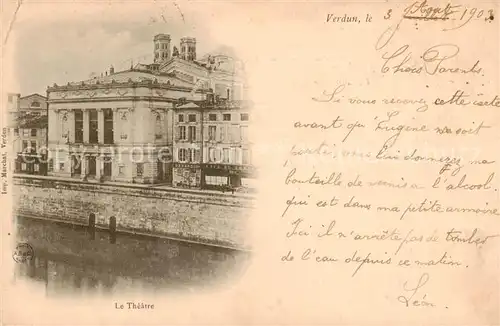 Verdun, le 3 Août 1903
Chers Parents.
Si vous recevez cette carte
avant qu'Eugène ne soit
parti, vous lui donnerez ma
bouteille de vernis à l'alcool
qui est dans ma petite armoire
Ici il n'arrête pas de tomber
de l'eau depuis ce matin.
Léon
Imp. Marchal, Verdun
Le Théâtre